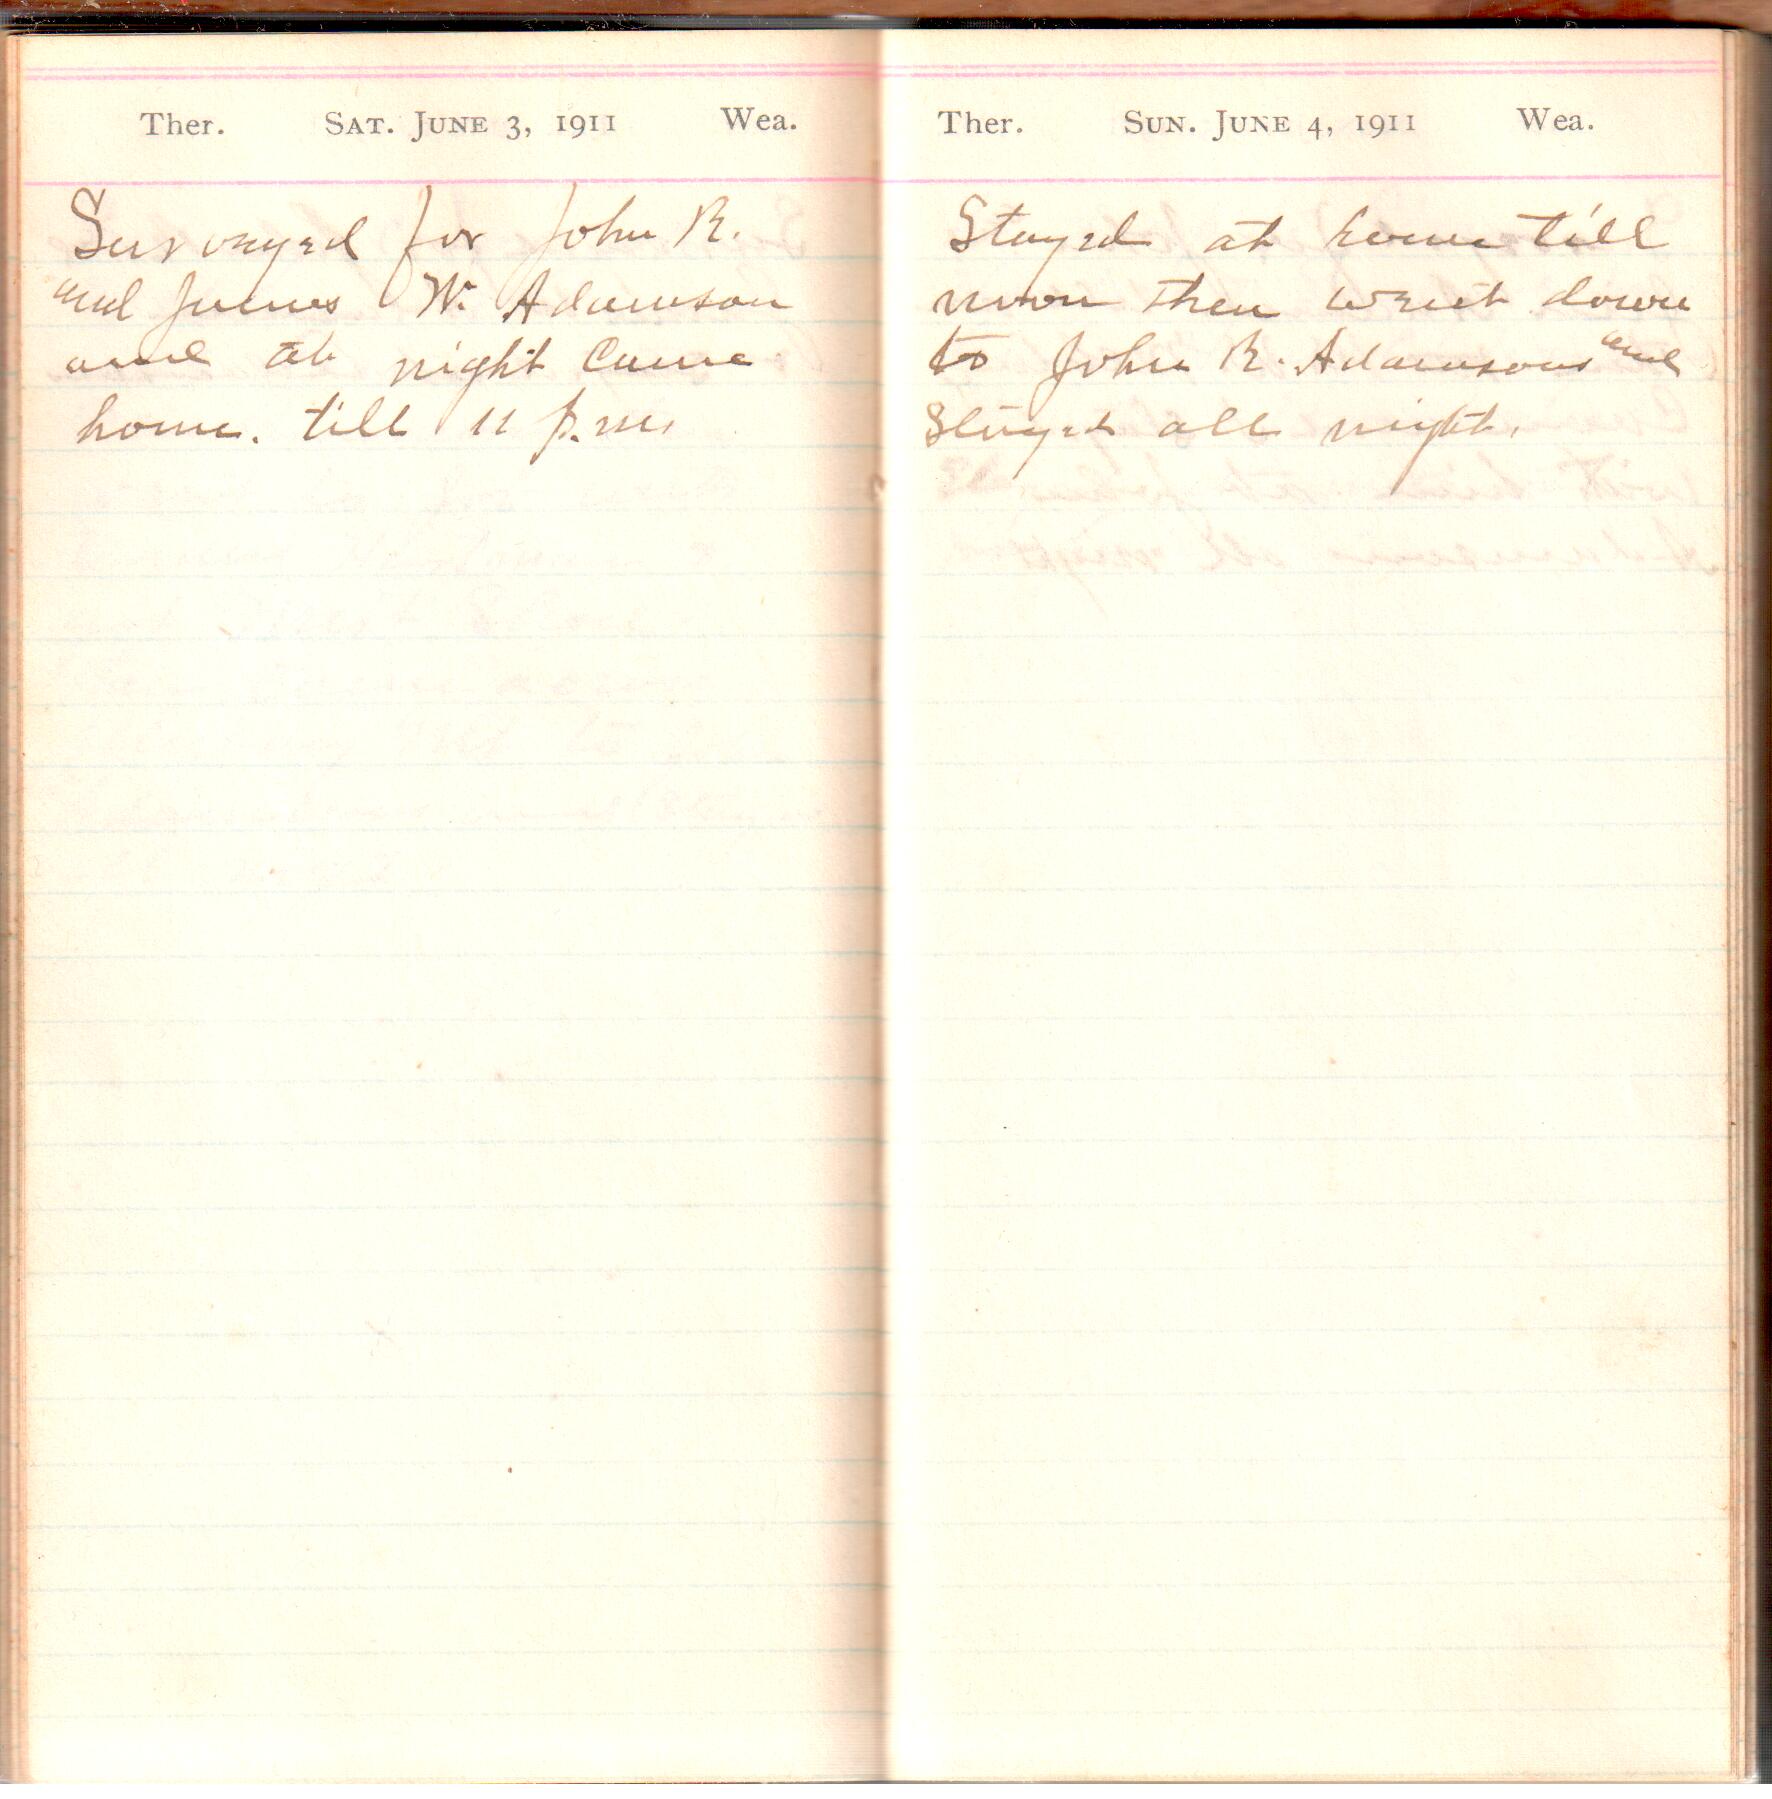 Ther. Sat. June 3, 1911 Wea.
Surveyed for John R.
and James W. Adamson
and at night came
home. till 11 p.m.
Ther. Sun. June 4, 1911 Wea.
Stayed at home till
noon then went down
to John R. Adamsons and
Stayed all night.